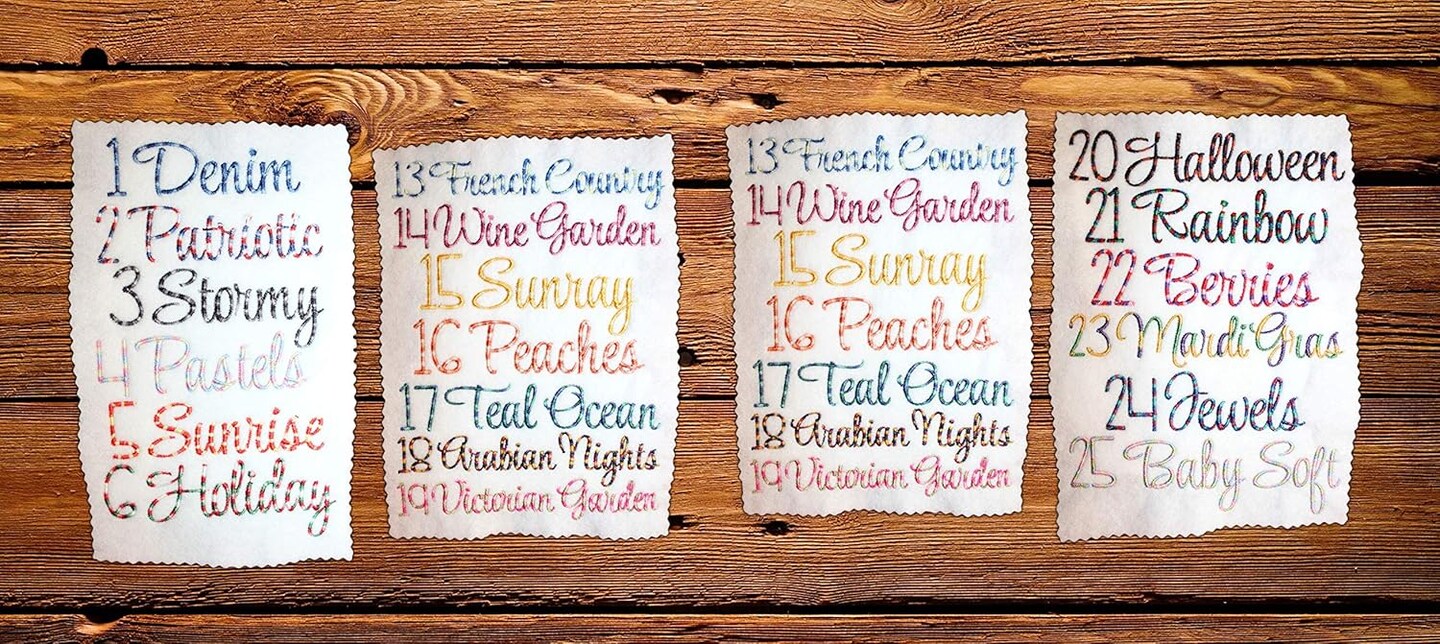 1 Denim
2 Patriotic
3 Stormy
4 Pastels
5 Sunrise
6 Holiday
13 French Country
14 Wine Garden
15 Sunray
16 Peaches
17 Teal Ocean
18 Arabian Nights
19 Victorian Garden
13 French Country
14 Wine Garden
15 Sunray
16 Peaches
17 Teal Ocean
18 Arabian Nights
19 Victorian Garden
20 Halloween
21 Rainbow
22 Berries
23 Mardi Gras
24 Jewels
25 Baby Soft